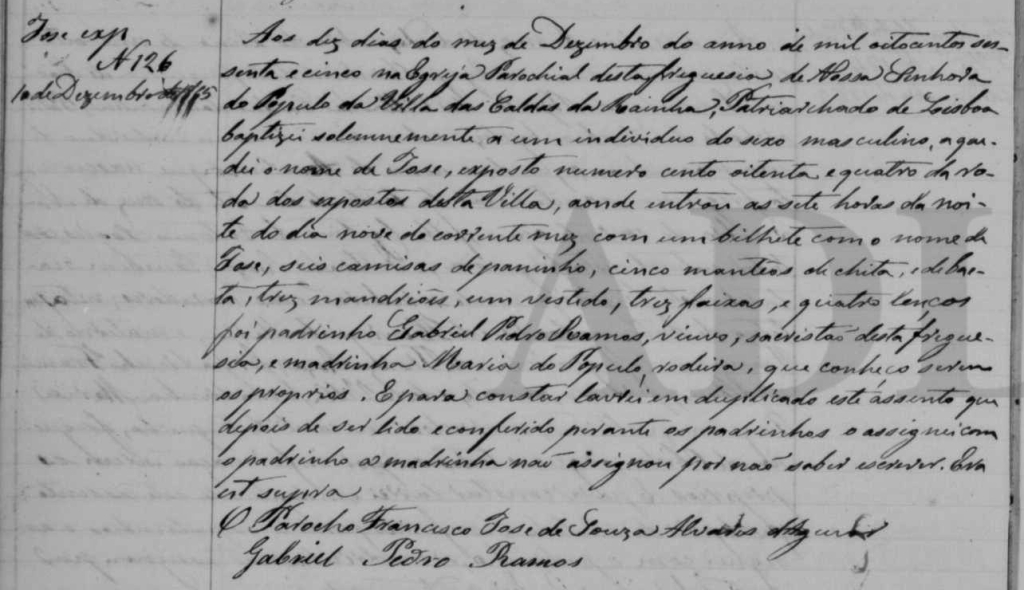 Jose exp
N 126
10 de Dezembro
Aos dez dias do mez de Dezembro do anno de mil oitocentos ses-
senta e cinco na Egreja Parochial desta freguesia de Nossa Senhora
do Populo da Villa das Caldas da Rainha, Patriarchado de Lisboa
baptizei solemnemente a um individuo do sexo masculino, a que
dei o nome de Jose, exposto numero cento oitenta e quatro da ro-
da dos expostos desta Villa, aonde entrou as sete horas da noi-
te do dia nove do corrente mez com um bilhete com o nome de
Jose, seis camisas de paninho, cinco manteos de chita, e de bae-
ta, trez mandriões, um vestido, trez faixas, e quatro lenços
foi padrinho Gabriel Pedro Ramos, viuvo, sacristão desta fregue-
sia, e madrinha Maria do Populo, rodeira, que conheço serem
os proprios. E para constar lavrei em duplicado este assento que
depois de ser lido e conferido perante os padrinhos o assignei com
o padrinho a madrinha não assignou por não saber escrever. Era
ut supra
O Parocho Francisco Jose de Souza Alvares d'Aguiar
Gabriel Pedro Ramos
ADL